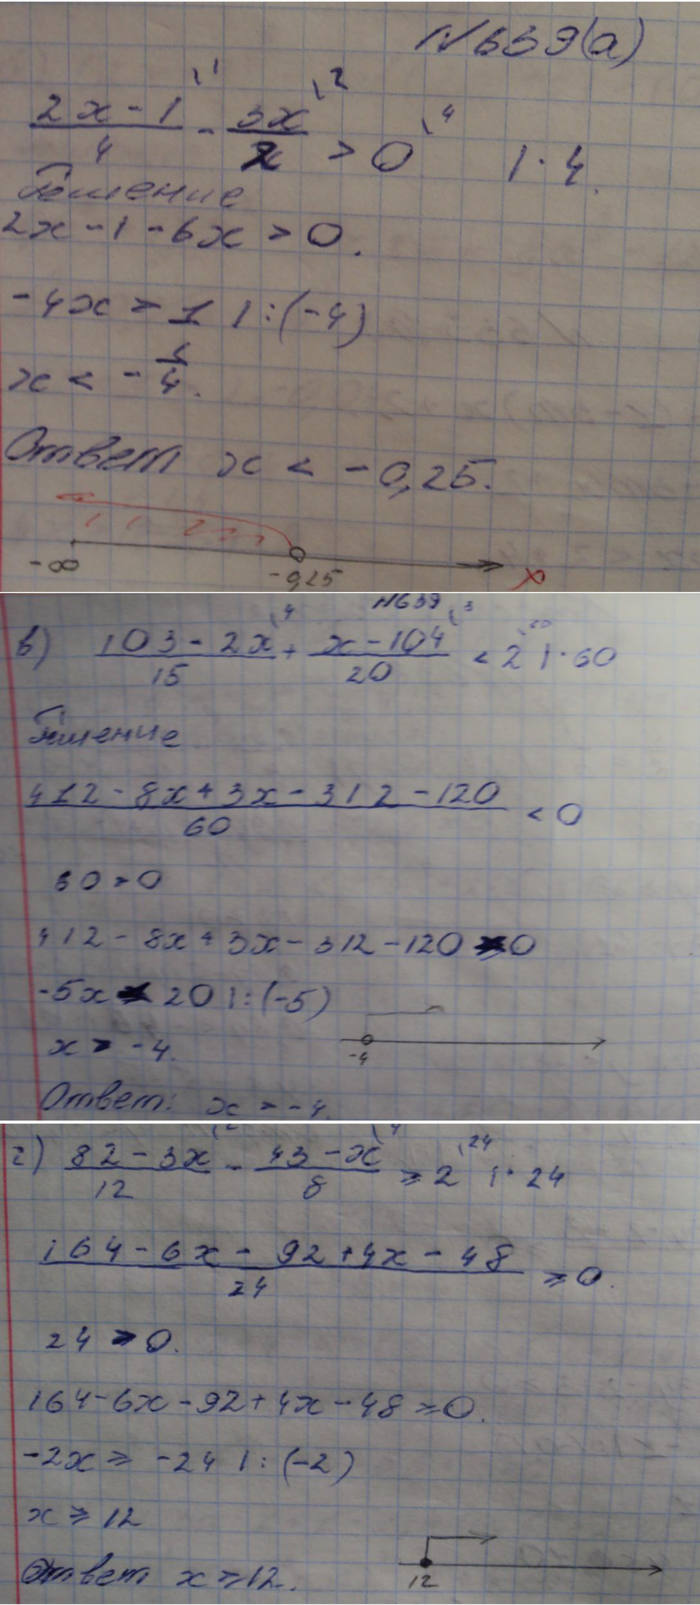 N 639(а)
(2x - 1)/4 \1 - 3x/2 \2 > 0 \4 | · 4.
Решение
2x - 1 - 6x > 0.
-4x > 1 | : (-4)
x < -1/4.
Ответ x < -0,25.
-∞ -0,25 x
N639
в) (103 - 2x)/15 \4 + (x - 104)/20 \3 < 2 \60 | · 60
Решение
(412 - 8x + 3x - 312 - 120)/60 < 0
60 > 0
412 - 8x + 3x - 312 - 120 < 0
-5x < 20 | : (-5)
x > -4.
-4
Ответ: x > -4.
г) (82 - 3x)/12 \2 - (43 - x)/8 \4 ⩾ 2 \24 | · 24
(164 - 6x - 92 + 4x - 48)/24 ⩾ 0.
24 > 0.
164 - 6x - 92 + 4x - 48 ⩾ 0.
-2x ⩾ -24 | : (-2)
x ⩾ 12
12
Ответ x ⩾ 12.